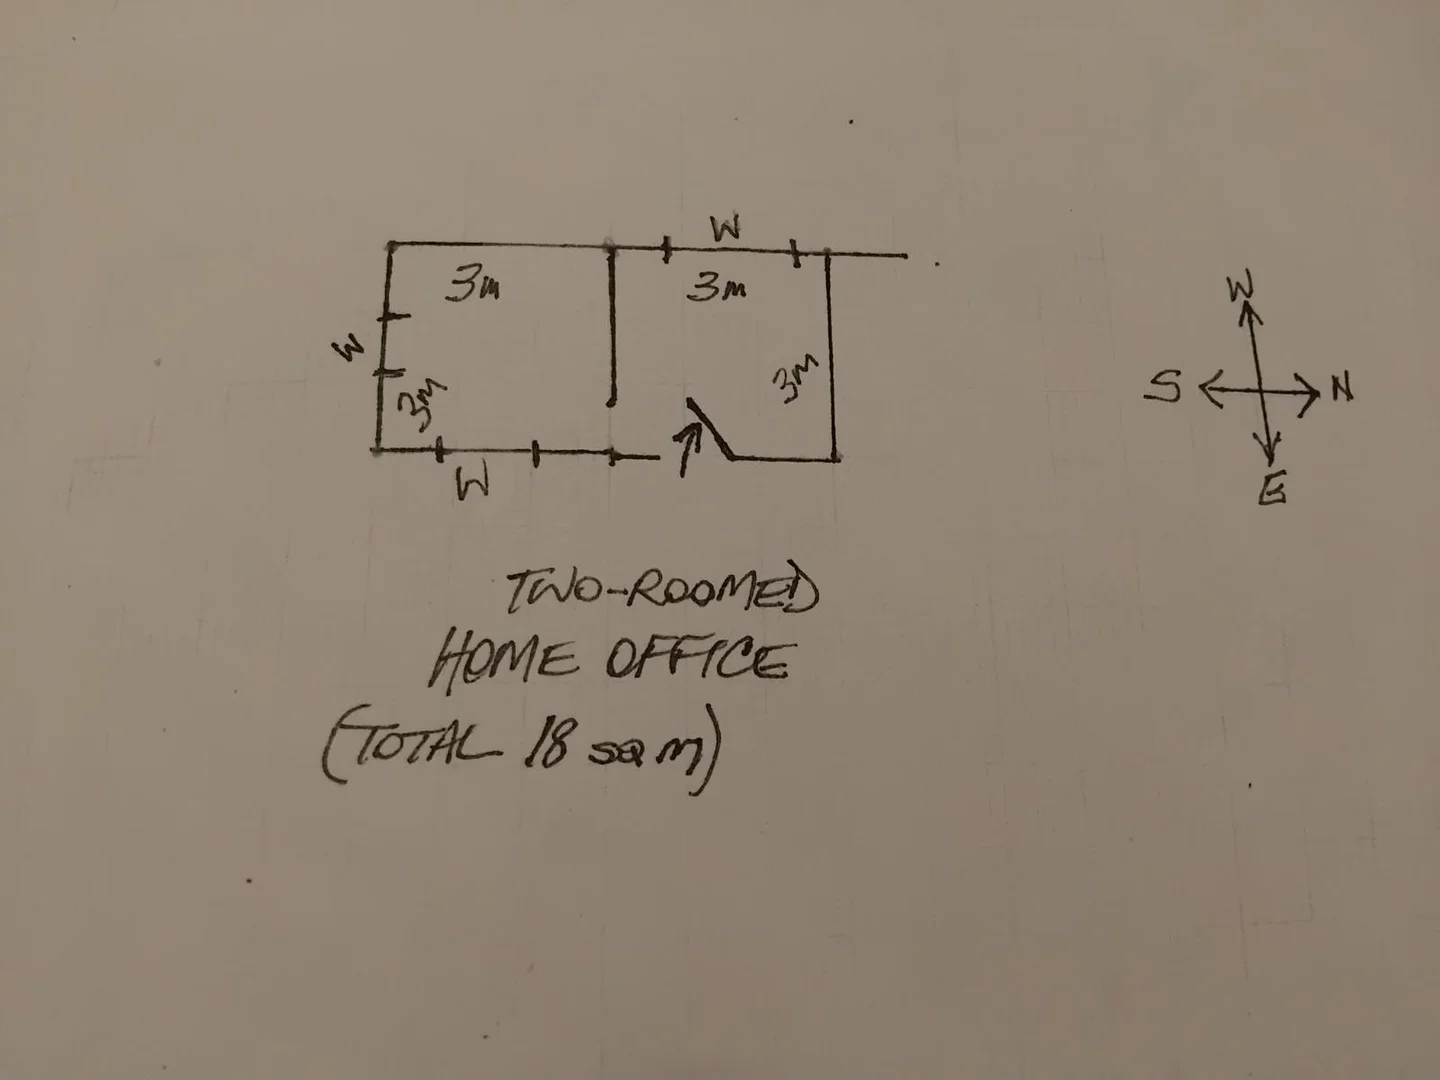 W
3m 3m
W
3m
3m
W
W
S N
E
TWO-ROOMED
HOME OFFICE
(TOTAL 18 sqm)